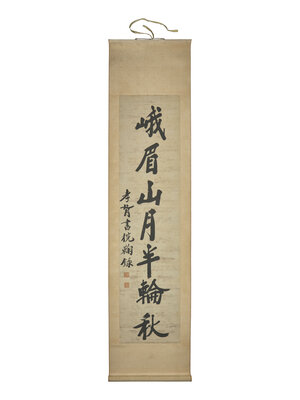 峨眉山月半輪秋
孝胥書